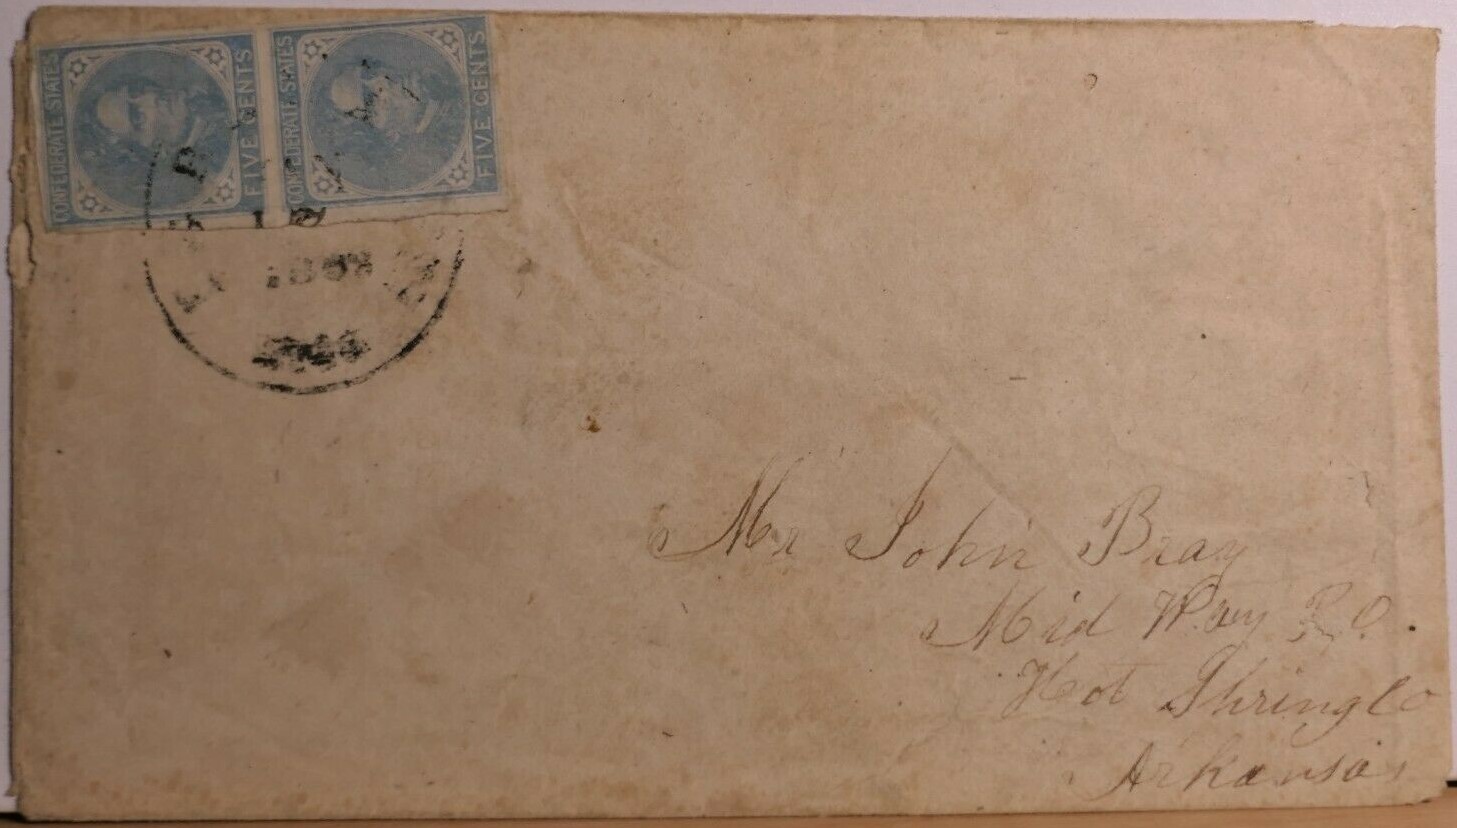 CONFEDERATE STATES
FIVE CENTS
CONFEDERATE STATES
FIVE CENTS
18
Mr John Bray
Mid Way P.O.
Hot Spring Co
Arkansas